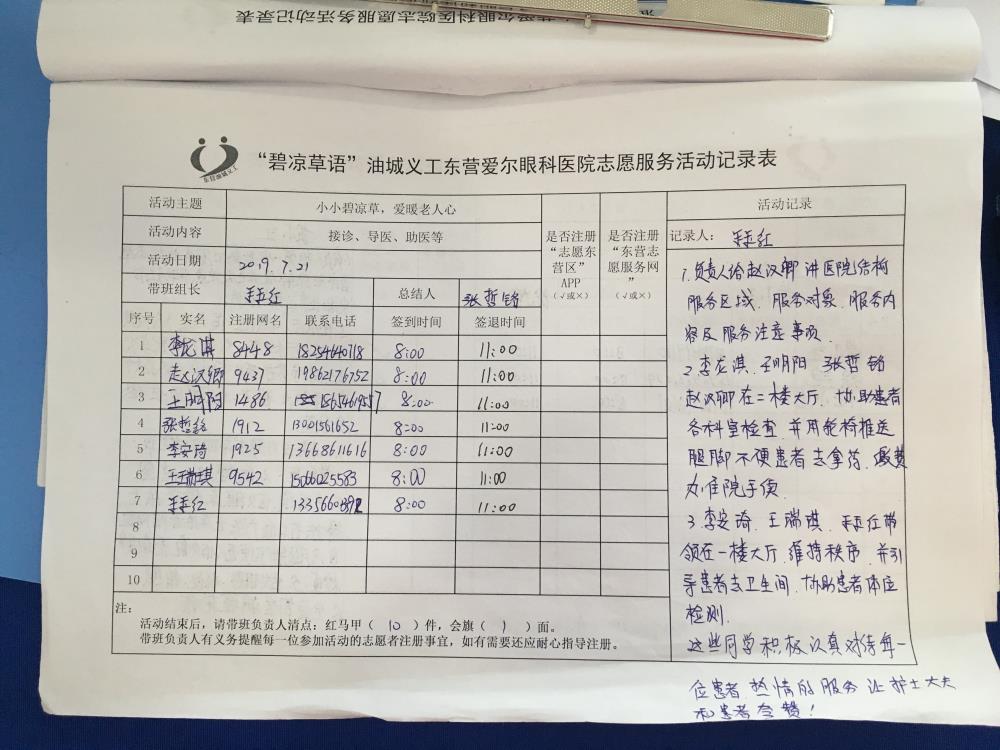 东营油城义工
“碧凉草语”油城义工东营爱尔眼科医院志愿服务活动记录表
活动主题 小小碧凉草，爱暖老人心
活动内容 接诊、导医、助医等
活动日期 2019.7.21
带班组长 总结人 张哲铭
是否注册“志愿东营区”APP（√或×）
是否注册“东营志愿服务网”（√或×）
序号 实名 注册网名 联系电话 签到时间 签退时间
1 李龙淇 8448 18254640718 8:00 11:00
2 赵汉卿 9437 19862176752 8:00 11:00
3 王明阳 1486 8:00 11:00
4 张哲铭 1912 13001561652 8:00 11:00
5 李安琦 1925 13668611616 8:00 11:00
6 王瑞琪 9542 15066025583 8:00 11:00
7 8:00 11:00
8
9
10
注：
活动结束后，请带班负责人清点：红马甲（ 10 ）件，会旗（ 1 ）面。
带班负责人有义务提醒每一位参加活动的志愿者注册事宜，如有需要还应耐心指导注册。
活动记录
记录人：
1.负责人给赵汉卿讲医院结构
服务区域、服务对象、服务内
容及服务注意事项.
2.李龙淇、王明阳、张哲铭
赵汉卿在二楼大厅、协助患者
各科室检查、并用轮椅推送
腿脚不便患者去拿药、缴费
办住院手续.
3.李安琦、王瑞琪、带
领在一楼大厅维持秩序、并引
导患者去卫生间、协助患者体位
检测.
这些同学积极认真对待每一
位患者 热情的服务 让护士大夫
和患者夸赞！